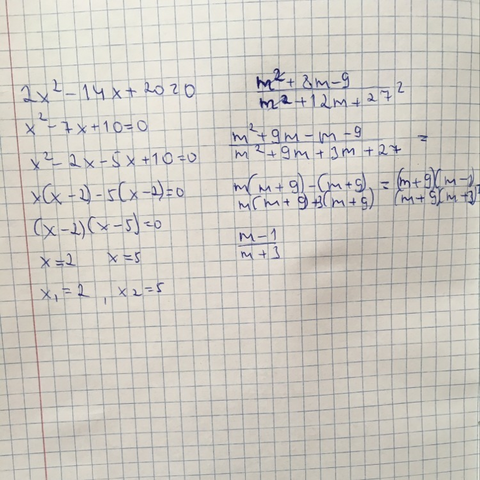 2x² - 14x + 20 = 0
x² - 7x + 10 = 0
x² - 2x - 5x + 10 = 0
x(x - 2) - 5(x - 2) = 0
(x - 2)(x - 5) = 0
x = 2 x = 5
x₁ = 2 , x₂ = 5
m² + 8m - 9
m² + 12m + 27
m² + 9m - m - 9 =
m² + 9m + 3m + 27
m(m + 9) - (m + 9) = (m + 9)(m - 1)
m(m + 9) + 3(m + 9) (m + 9)(m + 3)
m - 1
m + 3